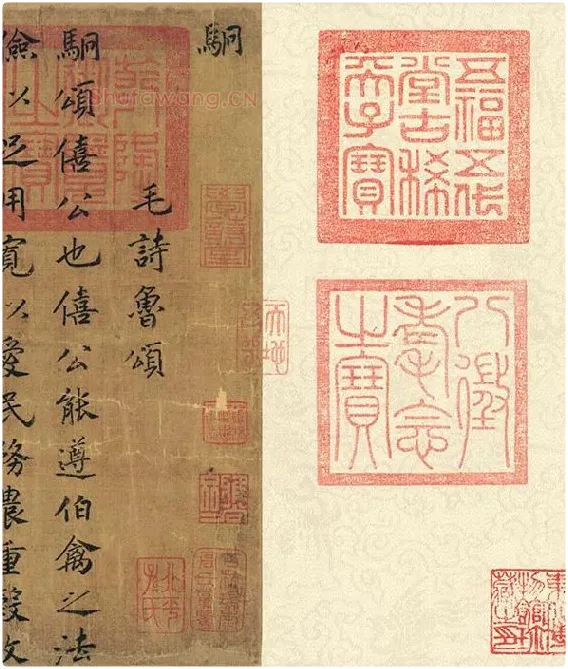 五福五代
堂古稀
天子寶
八徵
耄念
之寶
駉
毛詩魯頌
駉頌僖公也僖公能遵伯禽之法
儉以足用寬以愛民務農重
shufawang.CN